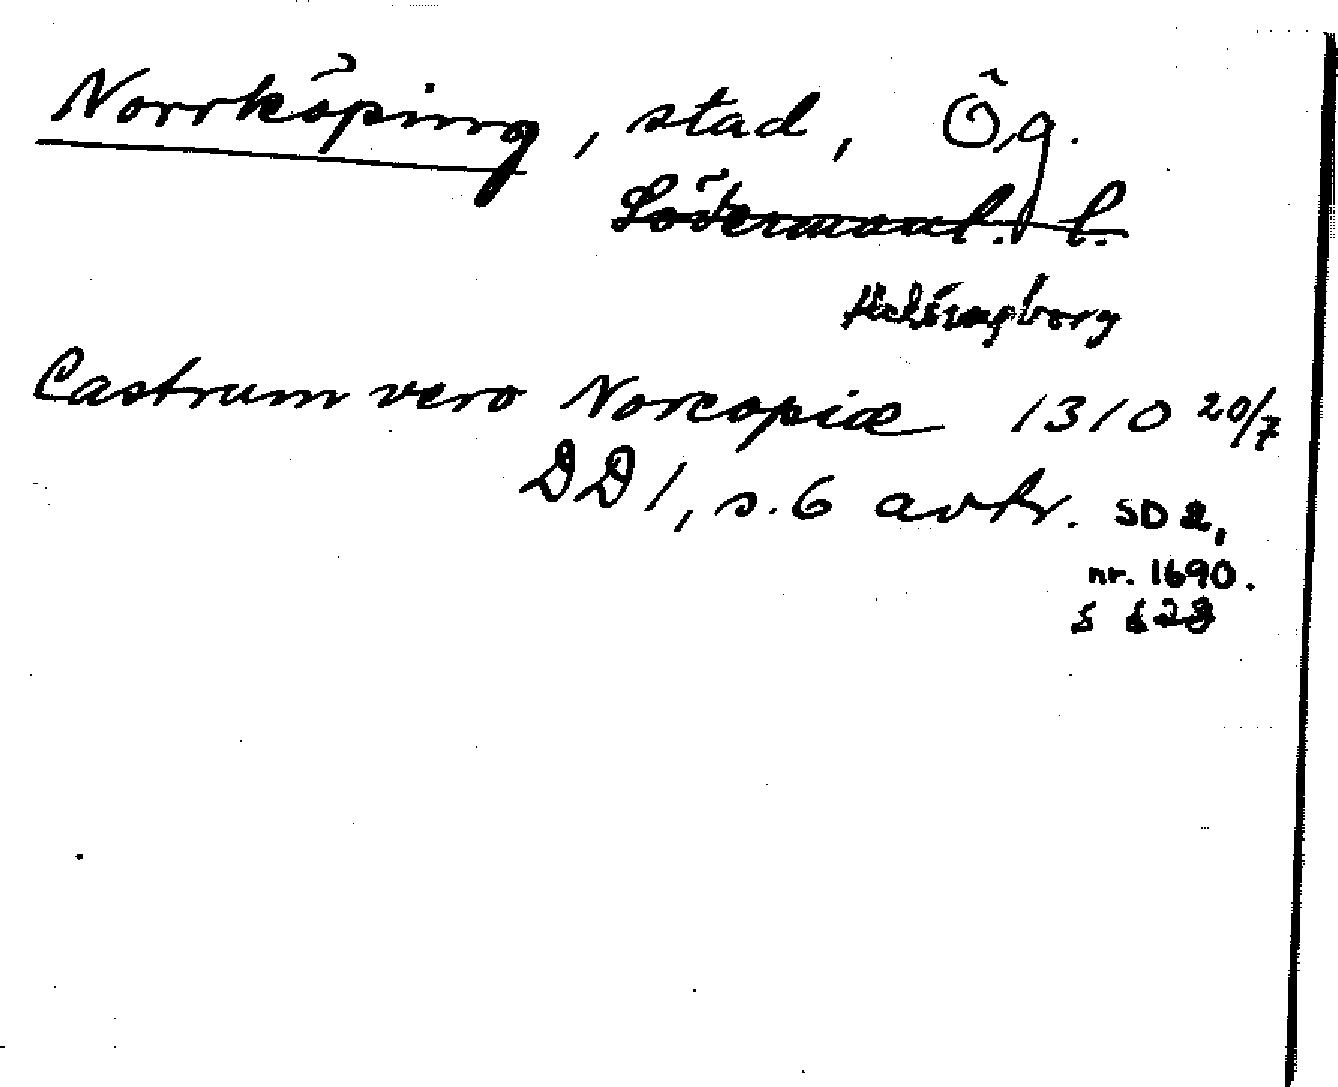 Norrköping, stad, Ög.
Södermanl. l.
Helsingborg
Castrum vero Norcopiæ 1310 20/7
DD 1, s. 6 avtr. SD 2,
nr. 1690.
S 628